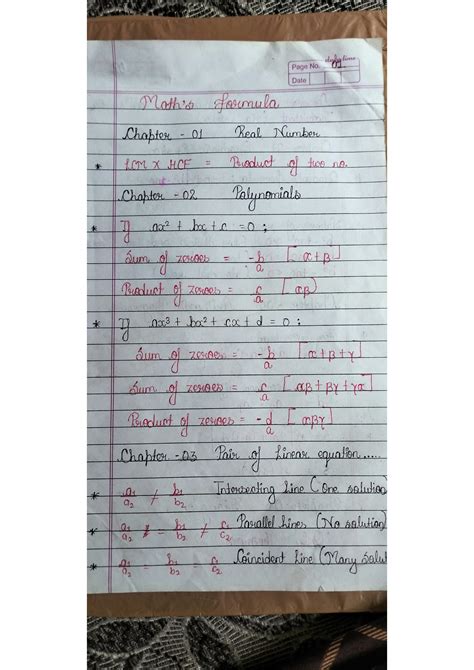 Page No. 01
Date
Math's Formula
Chapter - 01 Real Number
* LCM x HCF = Product of two no.
Chapter - 02 Polynomials
* If ax² + bx + c = 0 ;
Sum of zeroes = -b/a [α + β]
Product of zeroes = c/a [αβ)
* If ax³ + bx² + cx + d = 0 ;
Sum of zeroes = -b/a [α + β + γ]
Sum of zeroes = c/a [αβ + βγ + γα]
Product of zeroes = -d/a [αβγ]
Chapter - 03 Pair of Linear equation.....
* a₁/a₂ / b₁/b₂ Intersecting Line (One solution)
* a₁/a₂ = b₁/b₂ / c₁/c₂ Parallel Lines (No solution)
* a₁/a₂ = b₁/b₂ = c₁/c₂ Coincident Line (Many solut